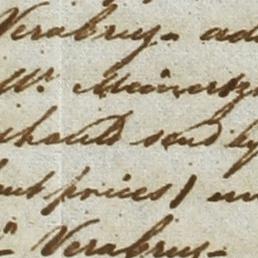 Verabruy- ad
Mr. Meinertz
should send by
but prices) an
Verabruy-